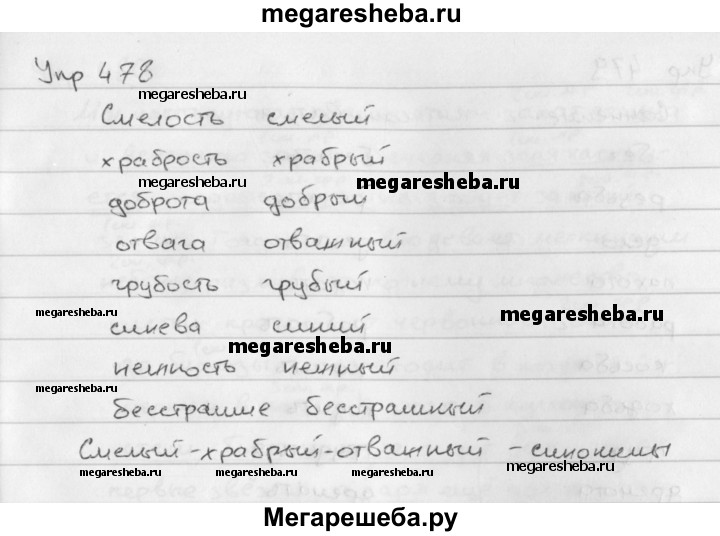 megaresheba.ru
Упр 478
megaresheba.ru
Смелость смелый
храбрость храбрый
megaresheba.ru megaresheba.ru
доброта добрый
отвага отважный
грубость грубый
megaresheba.ru megaresheba.ru
синева синий
megaresheba.ru
нежность нежный
megaresheba.ru
бесстрашие бесстрашный
Смелый - храбрый - отважный - синонимы
megaresheba.ru megaresheba.ru megaresheba.ru megaresheba.ru
Мегарешеба.ру